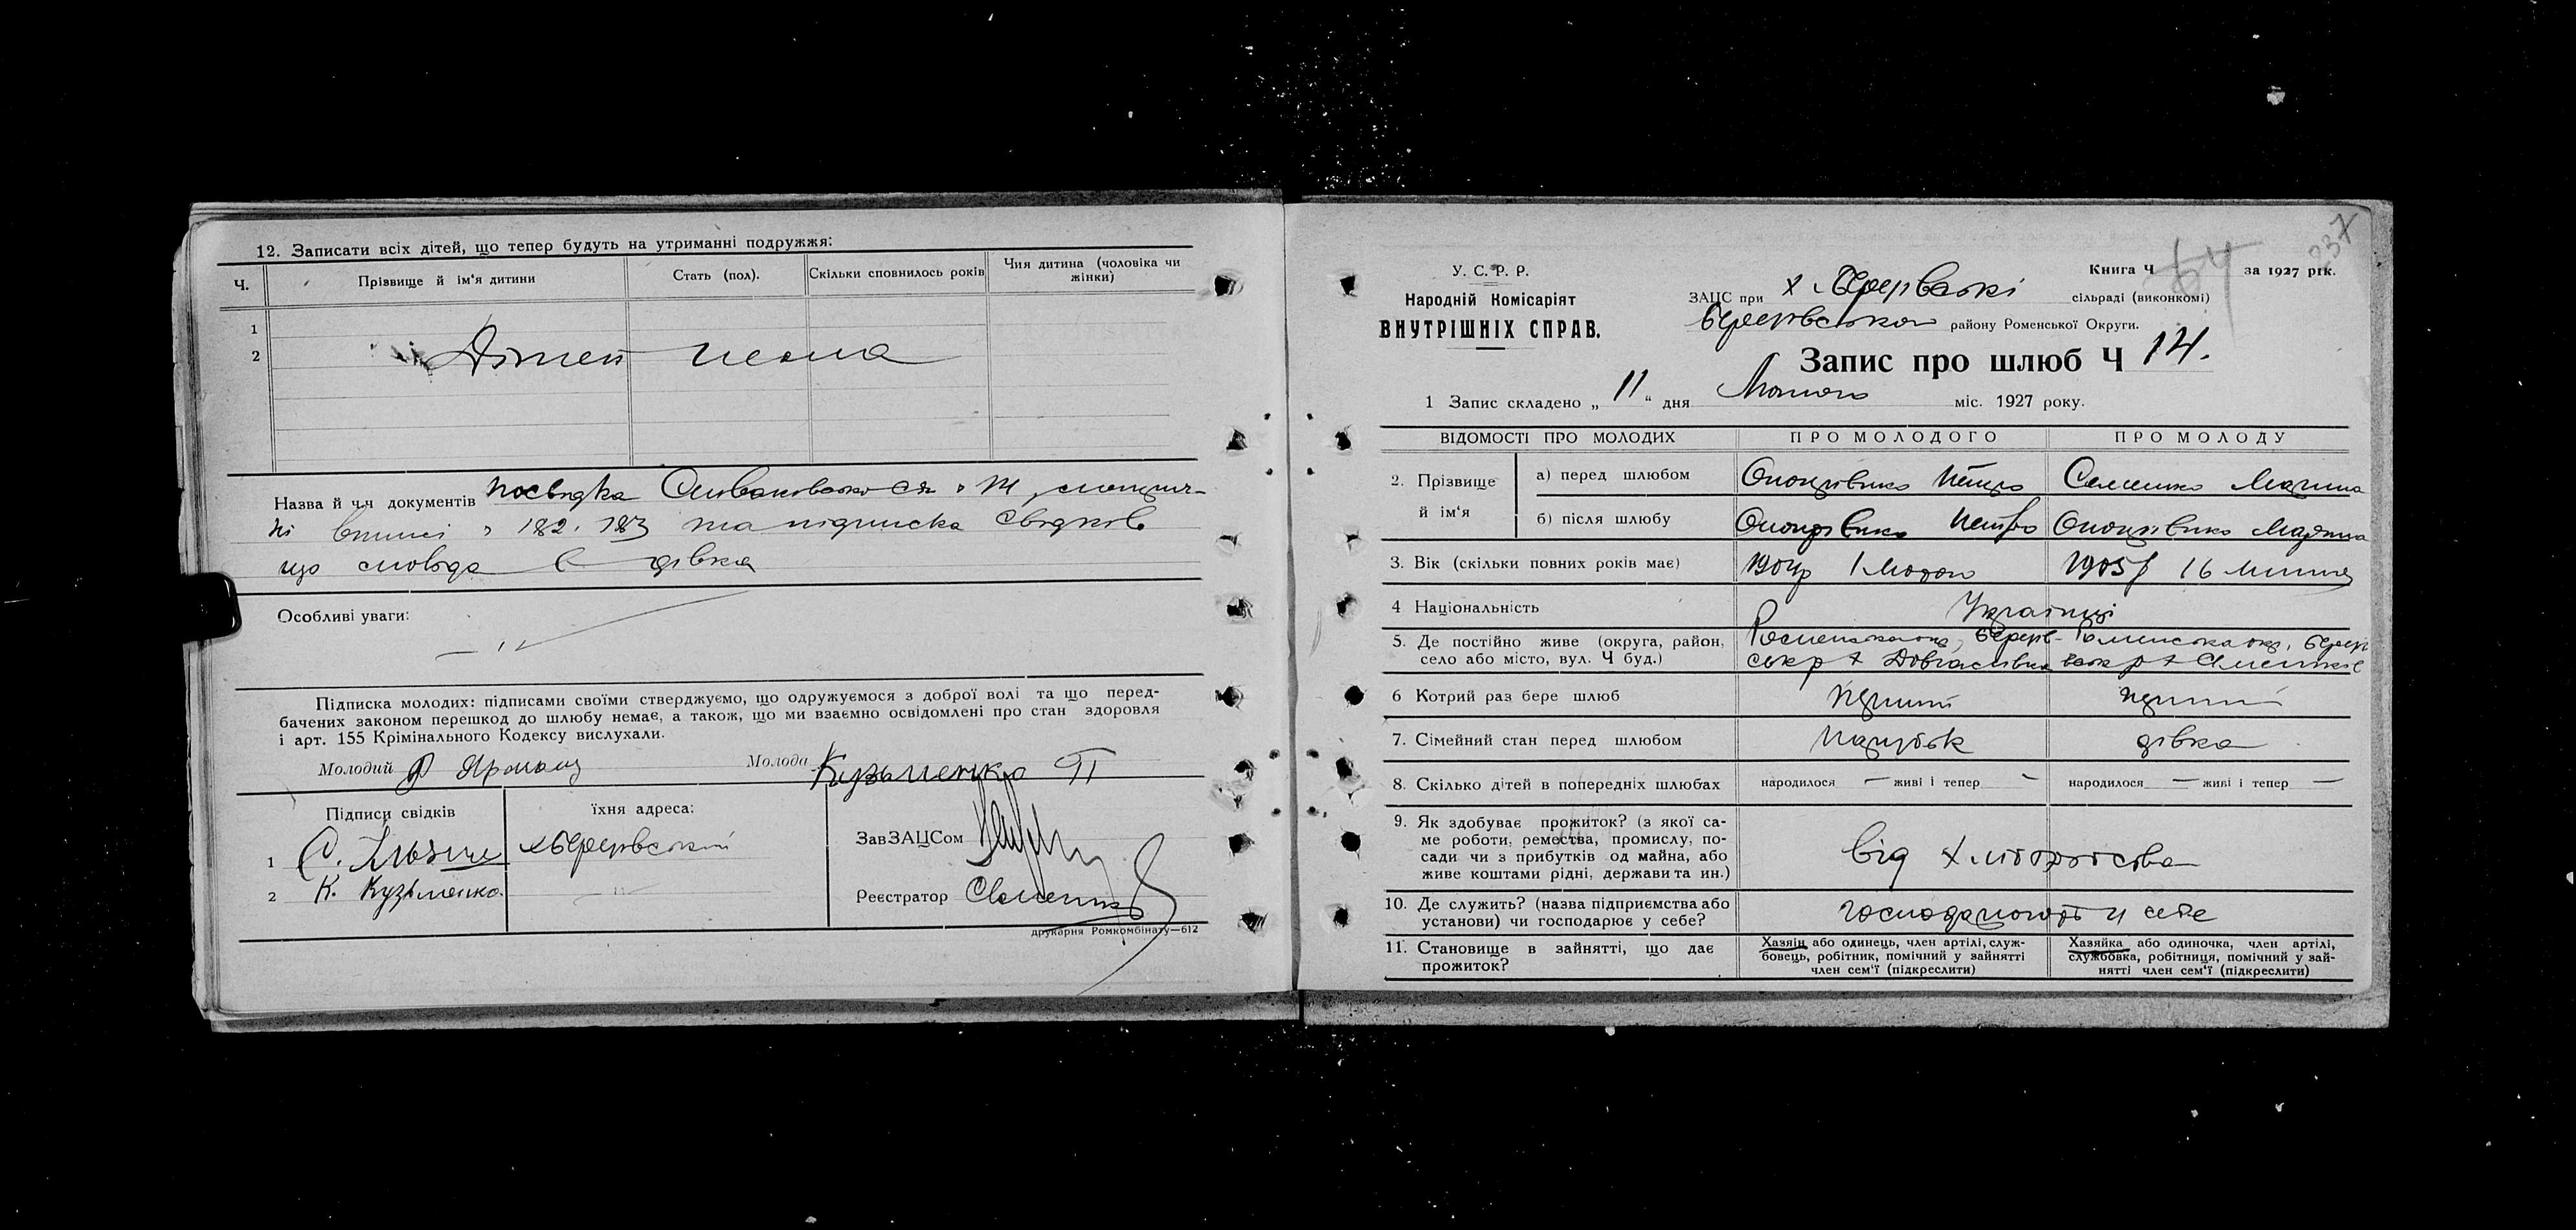 12. Записати всіх дітей, що тепер будуть на утриманні подружжя:
Ч. Прізвище й ім'я дитини Стать (пол). Скільки сповнилось років Чия дитина (чоловіка чи жінки)
1
2 Дітей нема
Назва й ч.ч документів посвідка
182. 183 та підписка свідків
що молода є дівка
Особливі уваги:
— " —
Підписка молодих: підписами своїми стверджуємо, що одружуємося з доброї волі та що перед-
бачених законом перешкод до шлюбу немає, а також, що ми взаємно освідомлені про стан здоровля
і арт. 155 Крімінального Кодексу вислухали.
Молодий Молода Кузьменко П
Підписи свідків їхня адреса:
ЗавЗАЦСом
1 С.
2 К. Кузьменко — " —
Реєстратор Семенко
друкарня Ромкомбінату—612
237
У. С. Р. Р.
Народній Комісаріят
ВНУТРІШНІХ СПРАВ.
Книга Ч 64 за 1927 рік.
ЗАЦС при х. сільраді (виконкомі)
району Роменської Округи.
Запис про шлюб Ч 14.
1 Запис складено „ 11 " дня Лютого міс. 1927 року.
ВІДОМОСТІ ПРО МОЛОДИХ ПРО МОЛОДОГО ПРО МОЛОДУ
2. Прізвище й ім'я а) перед шлюбом Петро Семенко
б) після шлюбу Петро
3. Вік (скільки повних років має) 1904р 1 1905р 16
4 Національність Українці
5. Де постійно живе (округа, район, Роменська окр,
село або місто, вул. Ч буд.)
6 Котрий раз бере шлюб перший перший
7. Сімейний стан перед шлюбом парубок дівка
8. Скілько дітей в попередніх шлюбах народилося — живі і тепер — народилося — живі і тепер —
9. Як здобуває прожиток? (з якої са-
ме роботи, ремества, промислу, по-
сади чи з прибутків од майна, або
живе коштами рідні, держави та ин.)
від хліборобства
10. Де служить? (назва підприємства або
установи) чи господарює у себе?
господарюють у себе
11. Становище в зайнятті, що дає
прожиток?
Хазяїн або одинець, член артілі, служ-
бовець, робітник, помічний у зайнятті
член сем'ї (підкреслити)
Хазяйка або одиночка, член артілі,
службовка, робітниця, помічний у зай-
нятті член сем'ї (підкреслити)